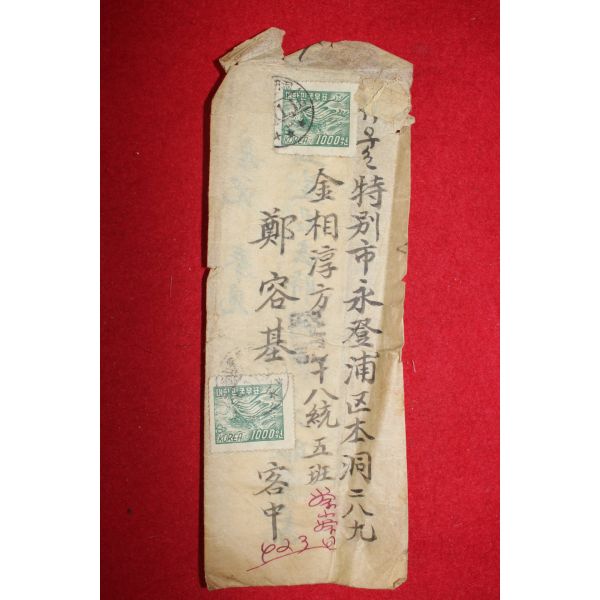 서울特別市永登浦区本洞二八九
金相淳方 十八統五班
鄭容基 客中
423
대한민국우표
KOREA 1000원
대한민국우표
KOREA 1000원